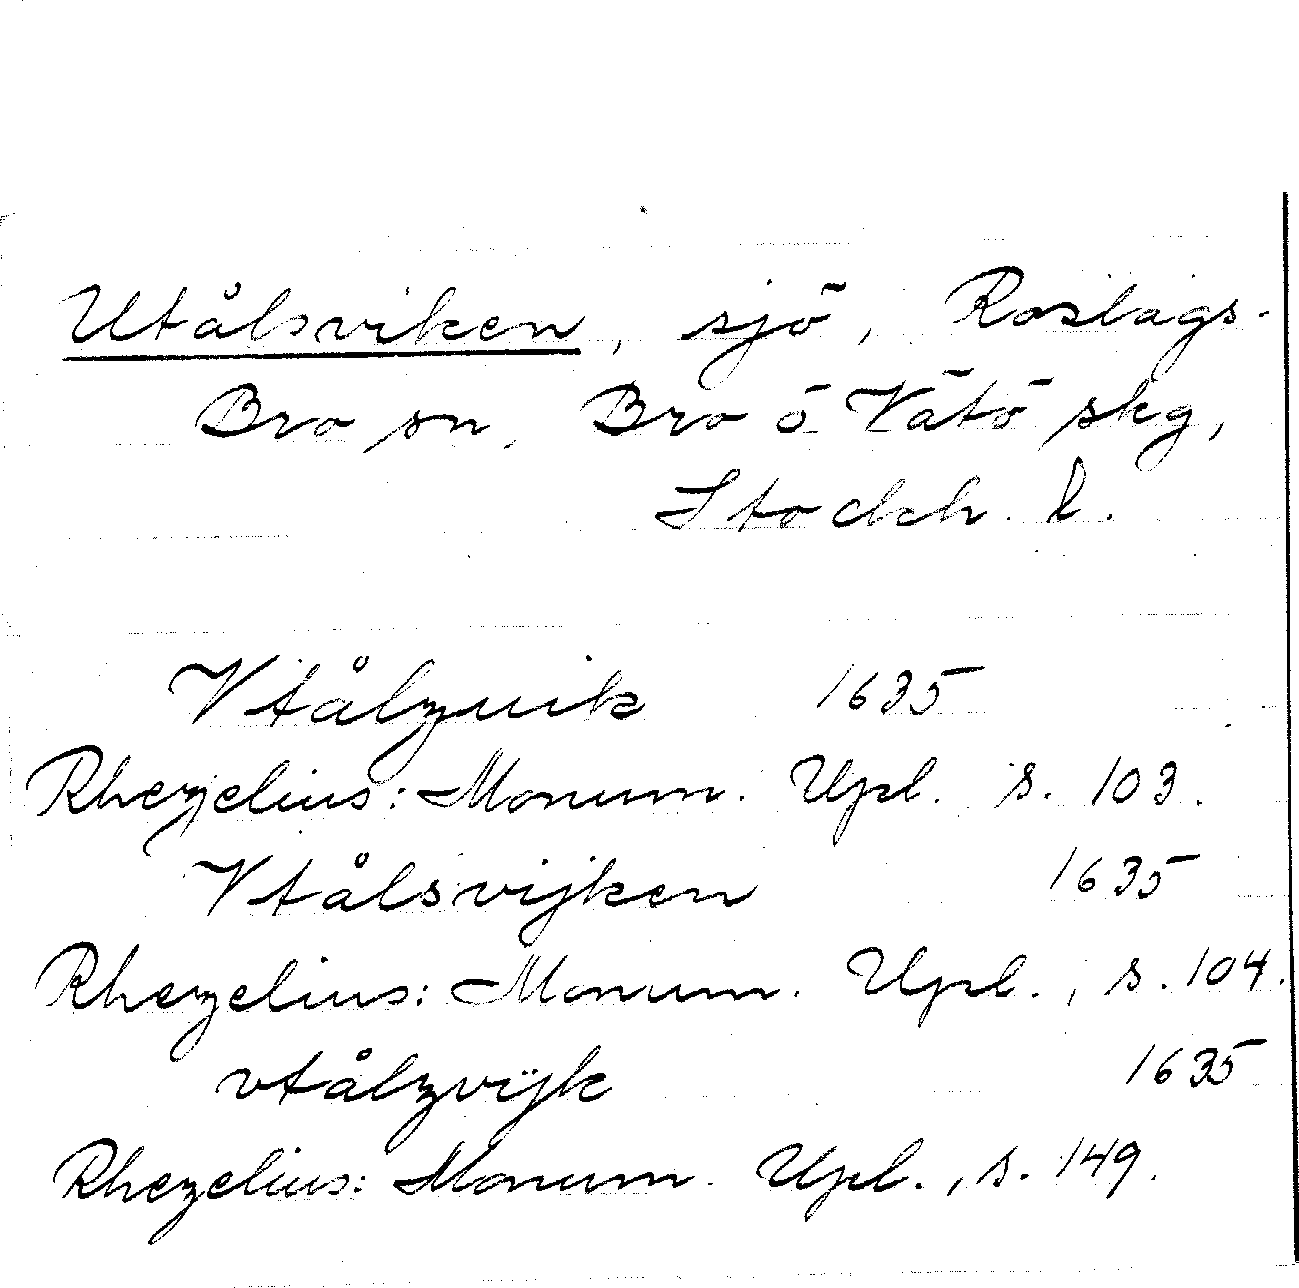 Utålsviken, sjö, Roslags-
Bro sn, Bro o Vätö skg,
Stockh. l.
Vtålzuik 1635
Rhezelius: Monum. Upl. s. 103.
Vtålsvijken 1635
Rhezelius: Monum. Upl., s. 104.
vtålzvijk 1635
Rhezelius: Monum. Upl., s. 149.